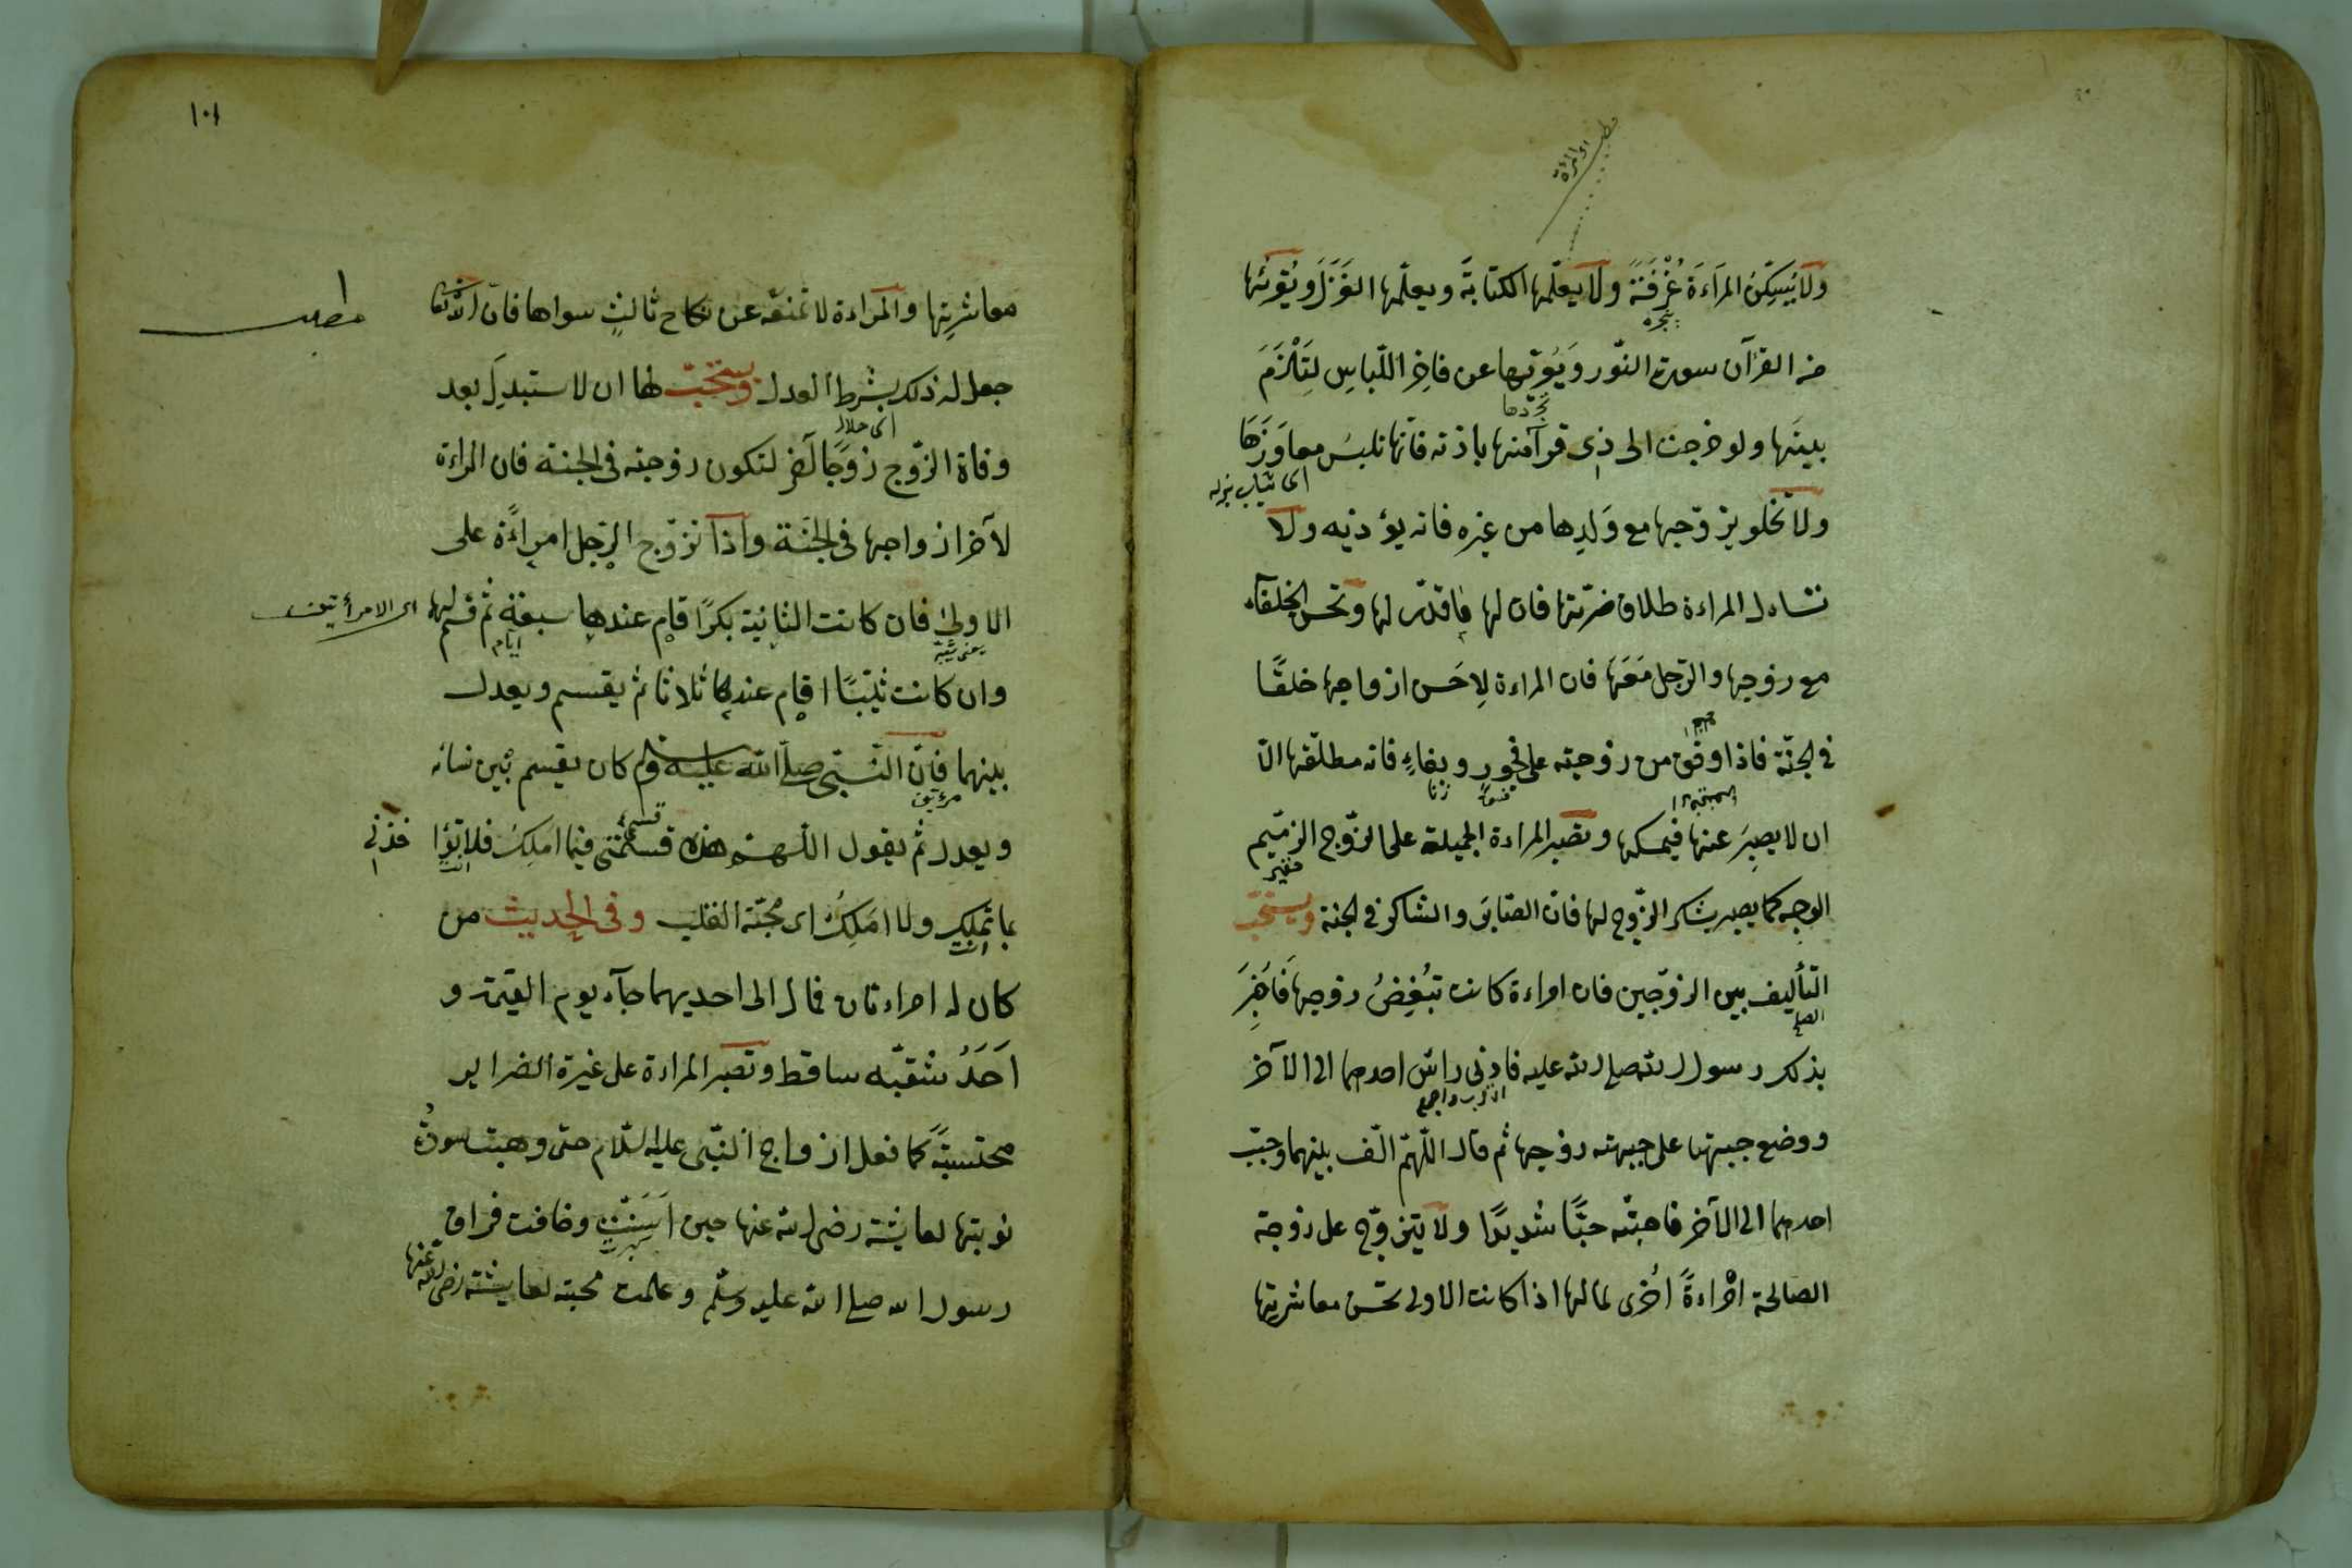 ولا يُسكِنُ المراءةَ غُرْفَةً ولا يعلّمها الكتابةَ ويعلّمها الغَزْلَ ويُقرِئها
من القرآن سورة النّور ويُعرّيها عن فاخِر اللّباسِ لِتَلْزَمَ
بيتَها ولو خرجت الى ذى قرابتها باذنه فانّها تلبسُ معاوِزَها
اى ثياب بذله
ولا تخلو بزوّجها مع وَلدِها من غيره فانه يؤذيه ولا
تسأل المراءة طلاق ضرّتها فان لها ما قدّر لها وتحسن الخلقَ
مع زوجها والرّجل مَعَها فان المراءة لِاحَسن ازواجها خلقًا
فى الجنّة فاذا وقف من زوجته على فجورٍ وبغاءٍ فانه يطلّقها الّا
زنا
ان لا يصبِرَ عنها فيمسكها وتصبر المراءة الجميلة على الزّوج الذّميم
الوجه كما يصبر يشكر الزّوج لها فان الصّابرَ والشاكر فى الجنة ويستحبّ
التّأليف بين الزوّجين فان امراءة كانت تُبْغِضُ زوجها فاُخبِرَ
الصلح
بذلك رسول الله صلى الله عليه فادنى راسَ احدهما الى الآخر
ووضع جبهتها على جبهته زوجها ثم قال اللّهمّ الّف بينهما وحبّب
احدهما الى الآخر فاحبّته حبًّا شديدًا ولا يتزوّج على زوجته
الصالحة امْراءةً اُخْرى لمالها اذا كانت الاولى تحسن معاشرتها
١٠١
معاشرِتها والمراءة لا تمنعه عن نكاح ثالثٍ سواها فان الله تعا
مطلب
جعل له ذلك بشرط العدل ويستحبّ لها ان لا تستبدِلَ بعد
اى حلال
وفاة الزّوج زوجًا آخر لتكون زوجته فى الجنة فان المراءة
لآخر ازواجها فى الجنّة واذا تزوّج الرّجل امراءةً على
الاولى فان كانت الثانية بكرًا قام عندها سبعة ثم قسم لها
ايام
اى الامرأتين
وان كانت ثيّبًا اقام عندها ثلاثا ثم يقسم ويعدل
بينهما فانّ النّبىّ صلّى الله عليه وسلم كان يقسم بين نسائه
ويعدل ثم يقول اللّهمّ هذه قسمتى فيما املِكُ فلا
بما تملِك ولا املِكُ اى محبّة القلب وفى الحديث من
انت
كان له امراءتان فمال الى احديهما جآء يوم القيمة و
اَحَدُ شقيّه ساقط وتصبر المراءة على غيرة الضراير
محتسبةً كما فعل ازواج النّبى عليه السّلام حتى وهبت سودةُ
نوبتها لعايشة رضى الله عنها حين اَسَنّت وخافت فراق
رسول الله صلى الله عليه وسلّم وعلمت محبته لعايشة رضى الله عنها